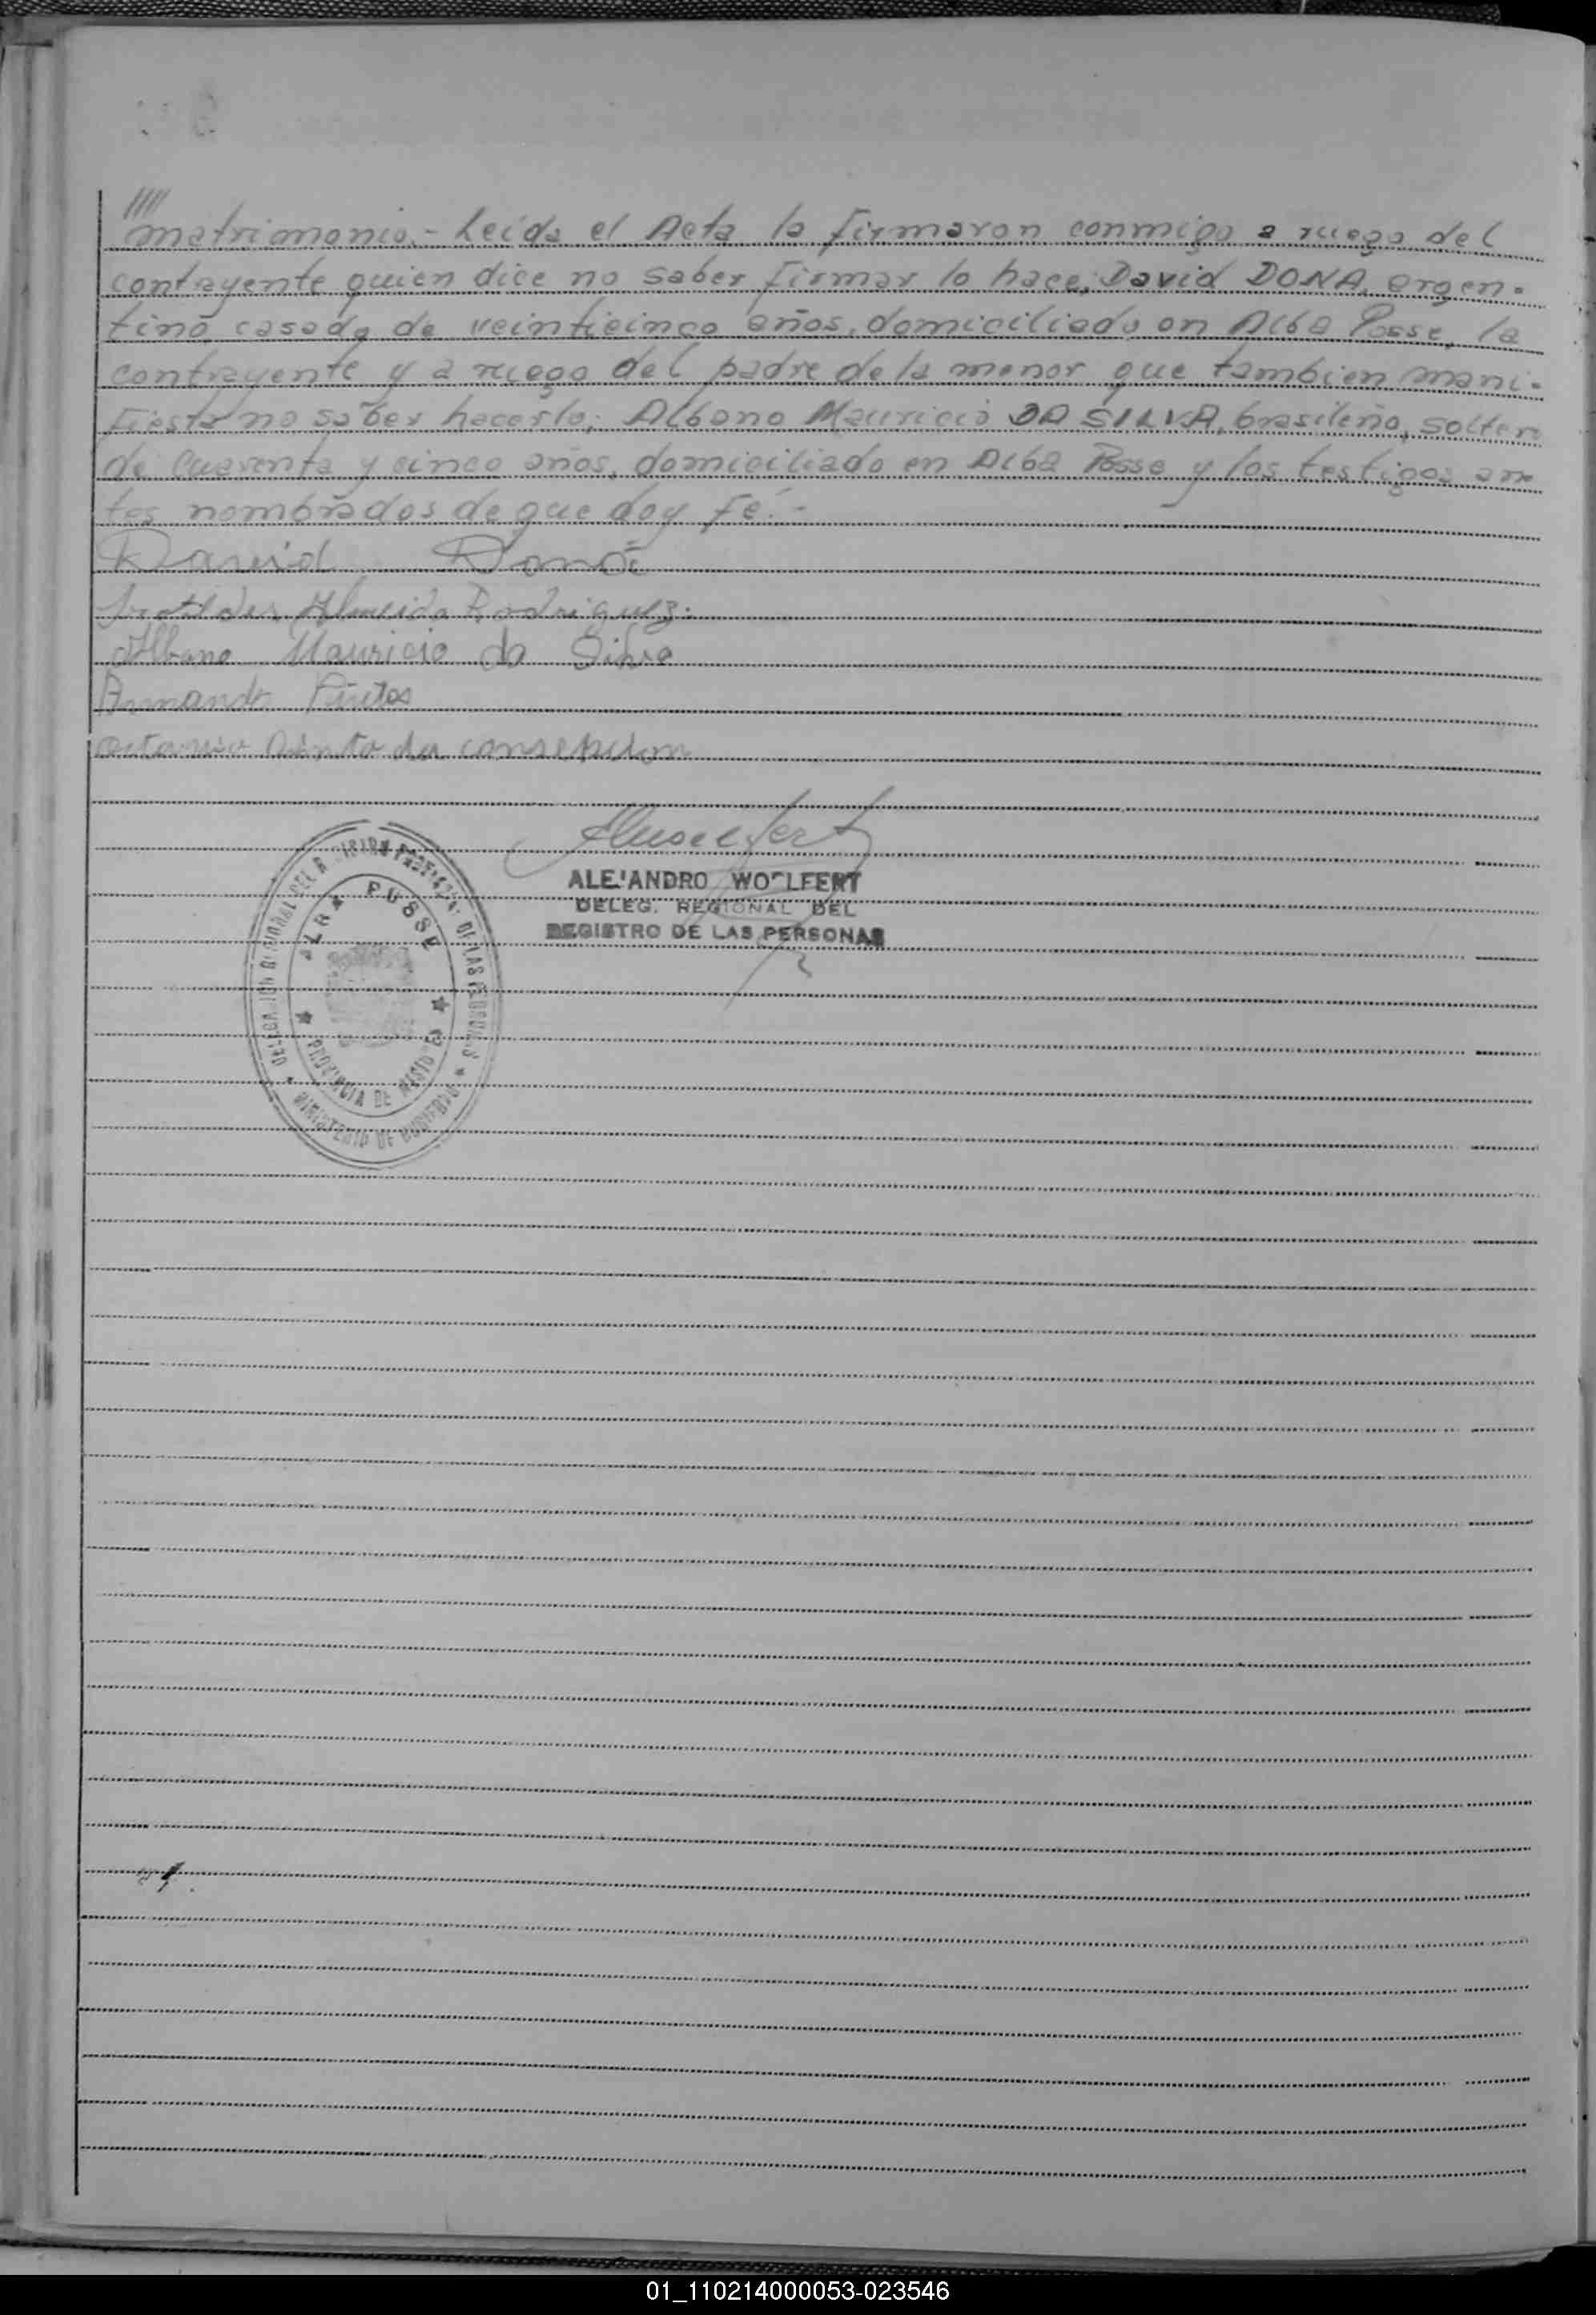 ////
matrimonio.- Leida el Acta la firmaron conmigo a ruego del
contrayente quien dice no saber firmar lo hace; David DONA, argen-
tino, casado de veinticinco años, domiciliado en Alba Posse, la
contrayente y a ruego del padre de la menor que tambien mani-
fiesta no saber hacerlo; Albano Mauricio DA SILVA, brasileño, soltero
de cuarenta y cinco años, domiciliado en Alba Posse y los testigos an-
tes nombrados de que doy fé.-
David Doná
Almeida Rodriguez.
Albano Mauricio da Silva
Armando
Pinto da consepcion
ALEJANDRO WOLFERT
DELEG. REGIONAL DEL
REGISTRO DE LAS PERSONAS
DELEGACION REGIONAL DEL REGISTRO PROVINCIAL DE LAS PERSONAS
ALBA POSSE
PROVINCIA DE MISIONES
MINISTERIO DE GOBIERNO
01_110214000053-023546